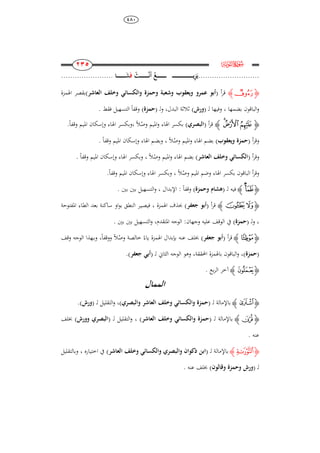 ٤٨٠
٢٣٥
﴿ رَءُوفٌ ﴾ قرأ (أبو عمرو ويعقوب وشعبة وحمزة والكسائي وخلف العاشر) بقصر الهمزة
والباقون بضمها ، وفيها لـ (ورش) ثلاثة البدل، ولـ (حمزة) وقفاً التسهيل فقط .
قرأ (البصري) بكسر الهاء والميم وصلاً ،وبكسر الهاء وإسكان الميم وقفاً.
وقرأ (حمزة ويعقوب) بضم الهاء والميم وصلاً ، وبضم الهاء وإسكان الميم وقفاً .
وقرأ (الكسائي وخلف العاشر) بضم الهاء والميم وصلاً ، وبكسر الهاء وإسكان الميم وقفاً .
وقرأ الباقون بكسر الهاء وضم الميم وصلاً ، وبكسر الهاء وإسكان الميم وقفاً.
فيه لـ (هشام وحمزة) وقفاً : الإبدال ، والتسهيل بين بين .
قرأ (أبو جعفر) بحذف الهمزة ، فيصير النطق بواو ساكنة بعد الطاء المفتوحة
، ولـ (حمزة) في الوقف عليه وجهان: الوجه المتقدم، والتسهيل بين بين .
قرأ (أبو جعفر) بخلف عنه بإبدال الهمزة ياءً خالصة وصلاً ووقفاً، وبهذا الوجه وقف
(حمزة)، والباقون بالهمزة المحققة، وهو الوجه الثاني لـ (أبي جعفر).
آخر الربع .
الممال
بالإمالة لـ (حمزة والكسائي وخلف العاشر والبصري)، والتقليل لـ (ورش).
بالإمالة لـ (حمزة والكسائي وخلف العاشر) ، والتقليل لـ (البصري وورش) بخلف
عنه .
﴿ التَّوْرَىٰةِ ﴾ بالإمالة لـ (ابن ذكوان والبصري والكسائي وخلف العاشر) في اختياره ، وبالتقليل
لـ (ورش وحمزة وقالون) بخلف عنه .